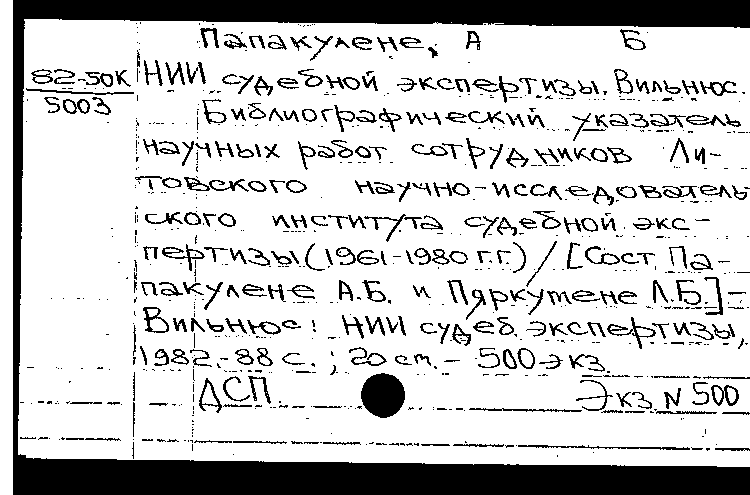 Папакулене, А Б
82-50К НИИ судебной экспертизы. Вильнюс.
5003 Библиографический указатель
научных работ сотрудников Ли-
товского научно-исследователь
ского института судебной экс-
пертизы (1961-1980 г.г.) / [Сост Па-
пакулене А.Б. и Пяркумене Л.Б.] -
Вильнюс: НИИ судеб. экспертизы,
1982.-88 с. ; 20 см. - 500 экз.
ДСП Экз N 500